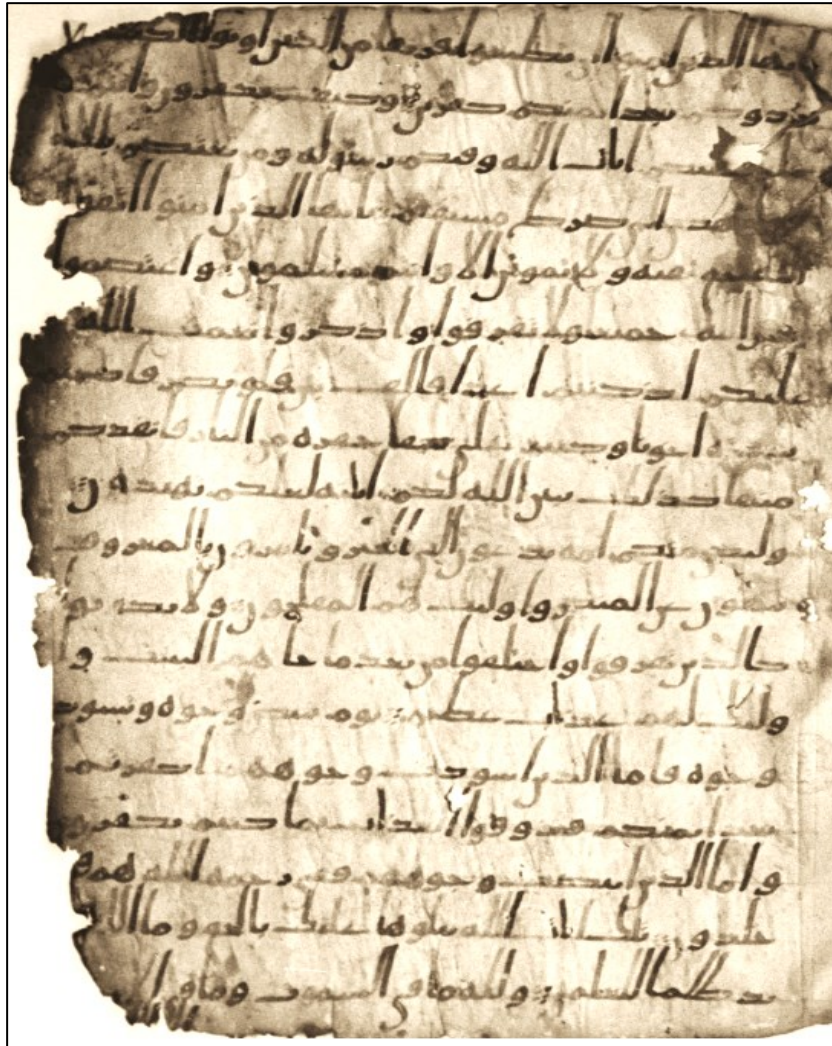 يايها الذين امنوا ان تطيعوا فريقا من الذين اوتوا الكتب
يردوكم بعد ايمنكم كفرين وكيف تكفرون وانتم
عليكم ايت الله وفيكم رسوله ومن يعتصم بالله
هدي الى صرط مستقيم يايها الذين امنوا اتقوا
الله حق تقته ولا تموتن الا وانتم مسلمون واعتصموا
بحبل الله جميعا ولا تفرقوا واذكروا نعمت الله
عليكم اذ كنتم اعدا فالف بين قلوبكم فاصبحتم
بنعمته اخونا وكنتم على شفا حفرة من النار فانقذكم
منها كذلك يبين الله لكم ايته لعلكم تهتدون
ولتكن منكم امة يدعون الى الخير ويامرون بالمعروف
وينهون عن المنكر واوليك هم المفلحون ولا تكونوا
كالذين تفرقوا واختلفوا من بعد ما جاهم البينت وا
وليك لهم عذاب عظيم يوم تبيض وجوه وتسود
وجوه فاما الذين اسودت وجوههم اكفرتم
بعد ايمنكم فذوقوا العذاب بما كنتم تكفرون
واما الذين ابيضت وجوههم ففي رحمة الله هم فيها
خلدون تلك ايت الله نتلوها عليك بالحق وما الله
يريد ظلما للعلمين ولله ما في السموت وما في الا